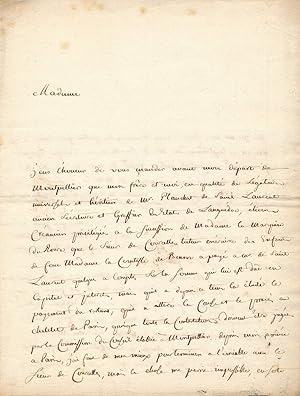 Madame
j'eus l'honneur de vous mander avant mon départ de
Montpellier que mon frere et moi en qualité de Légataire
universel et héritier de Mr. Plauchut de Saint Laurent
ancien Secretaire et Greffier des Etats de Languedoc, etions
Créanciers privilégiés à la succession de Madame la Marquise
du Roure que le Sieur de tuteur des Enfants
de feue Madame la Comtesse de a payé à mr. de Saint
Laurent quelque à Compte sur la somme qui lui est due en
Capital et interets, mais que depuis
payement du restant, que l'affaire la Cause et le procès au
chatelet de Paris, quoique toute la Contestation devroit être jugée
par la Commission du Conseil établie à Montpellier. depuis mon arrivée
à Paris, j'ai fait de mon mieux pour terminer à l'amiable avec le
Sieur de mais la chose me paroit impossible, en sorte